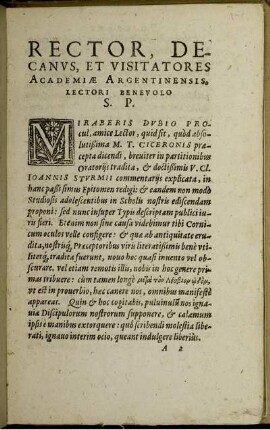 RECTOR, DE-
CANVS, ET VISITATORES
ACADEMIÆ ARGENTINENSIS,
LECTORI BENEVOLO
S. P.
MIRABERIS DVBIO PRO
cul, amice Lector, quid sit, quòd abso-
lutissima M. T. CICERONIS præ
cepta dicendi, breuiter in partitionibus
Oratorijs tradita, & doctissimis V. Cl.
IOANNIS STVRMII commentarijs explicata, in
hanc paßissimus Epitomen redigi: & eandem non modò
Studiosis adolescentibus in Scholis nostris ediscendam
proponi: sed nunc insuper Typis descriptam publici iu-
ris fieri. Etenim non sine causa videbimur tibi Corni-
cum oculos velle configere: & quæ ab antiquitate erudi
ta, nostrisq́; Præceptoribus viris literatissimis benè vti-
literq́; tradita fuerunt, nouo hoc quasi inuento vel ob-
scurare. vel etiam remotis illis, nobis in hoc genere pri-
mas tribuere: cum tamen longè μετὰ τὸν Λέσβιον ᾠδὸν,
vt est in prouerbio, hæc canere nos, omnibus manifestū
appareat. Quin & hoc cogitabis, puluinulū nos igna-
uis Discipulorum nostrorum supponere, & calamum
ipsis è manibus extorquere: quò scribendi molestia libe-
rati, ignauo interim ocio, queant indulgere liberius.
A 2